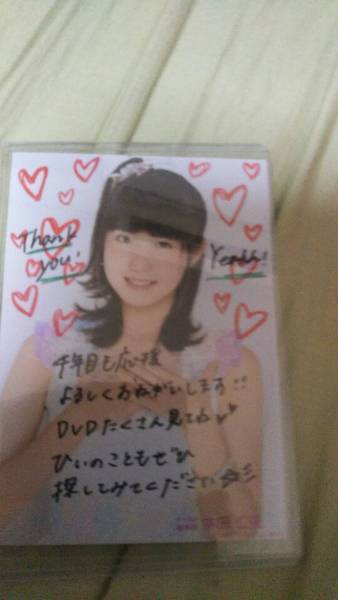 Thank you!
Yeahh!
4年目も応援
よろしくおねがいします!!
DVDたくさん見てね♥♥
ひぃのこともぜひ
探してみてください